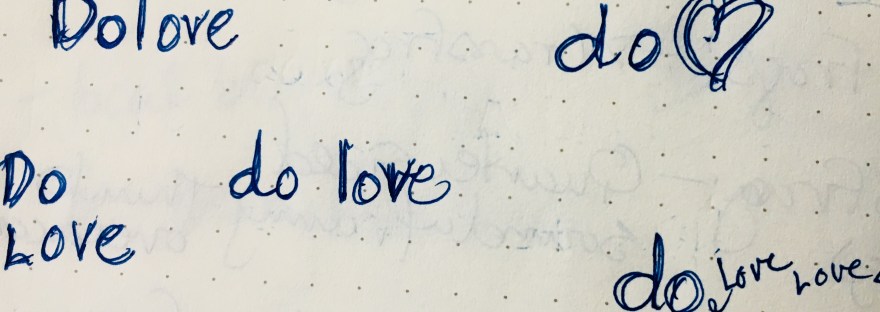 Dolove
do ♡
Do
Love
do love
do Love Love